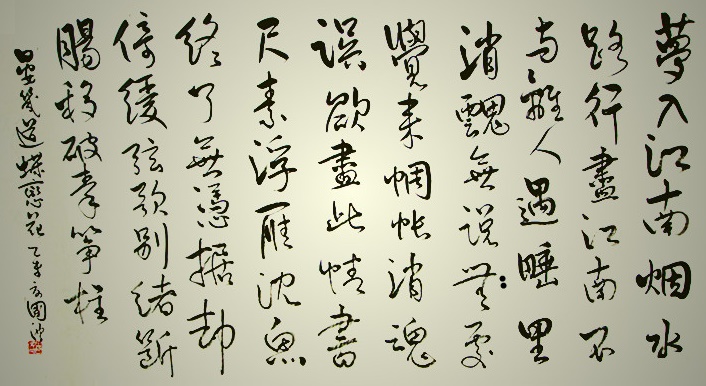 夢入江南烟水
路行盡江南不
与離人遇睡里
消魂無説處
覺来惆悵消魂
誤欲盡此情書
尺素浮雁沈魚
終了無憑據却
倚緩弦歌别緒斷
腸移破秦箏柱
晏幾道蝶戀花 乙未 國